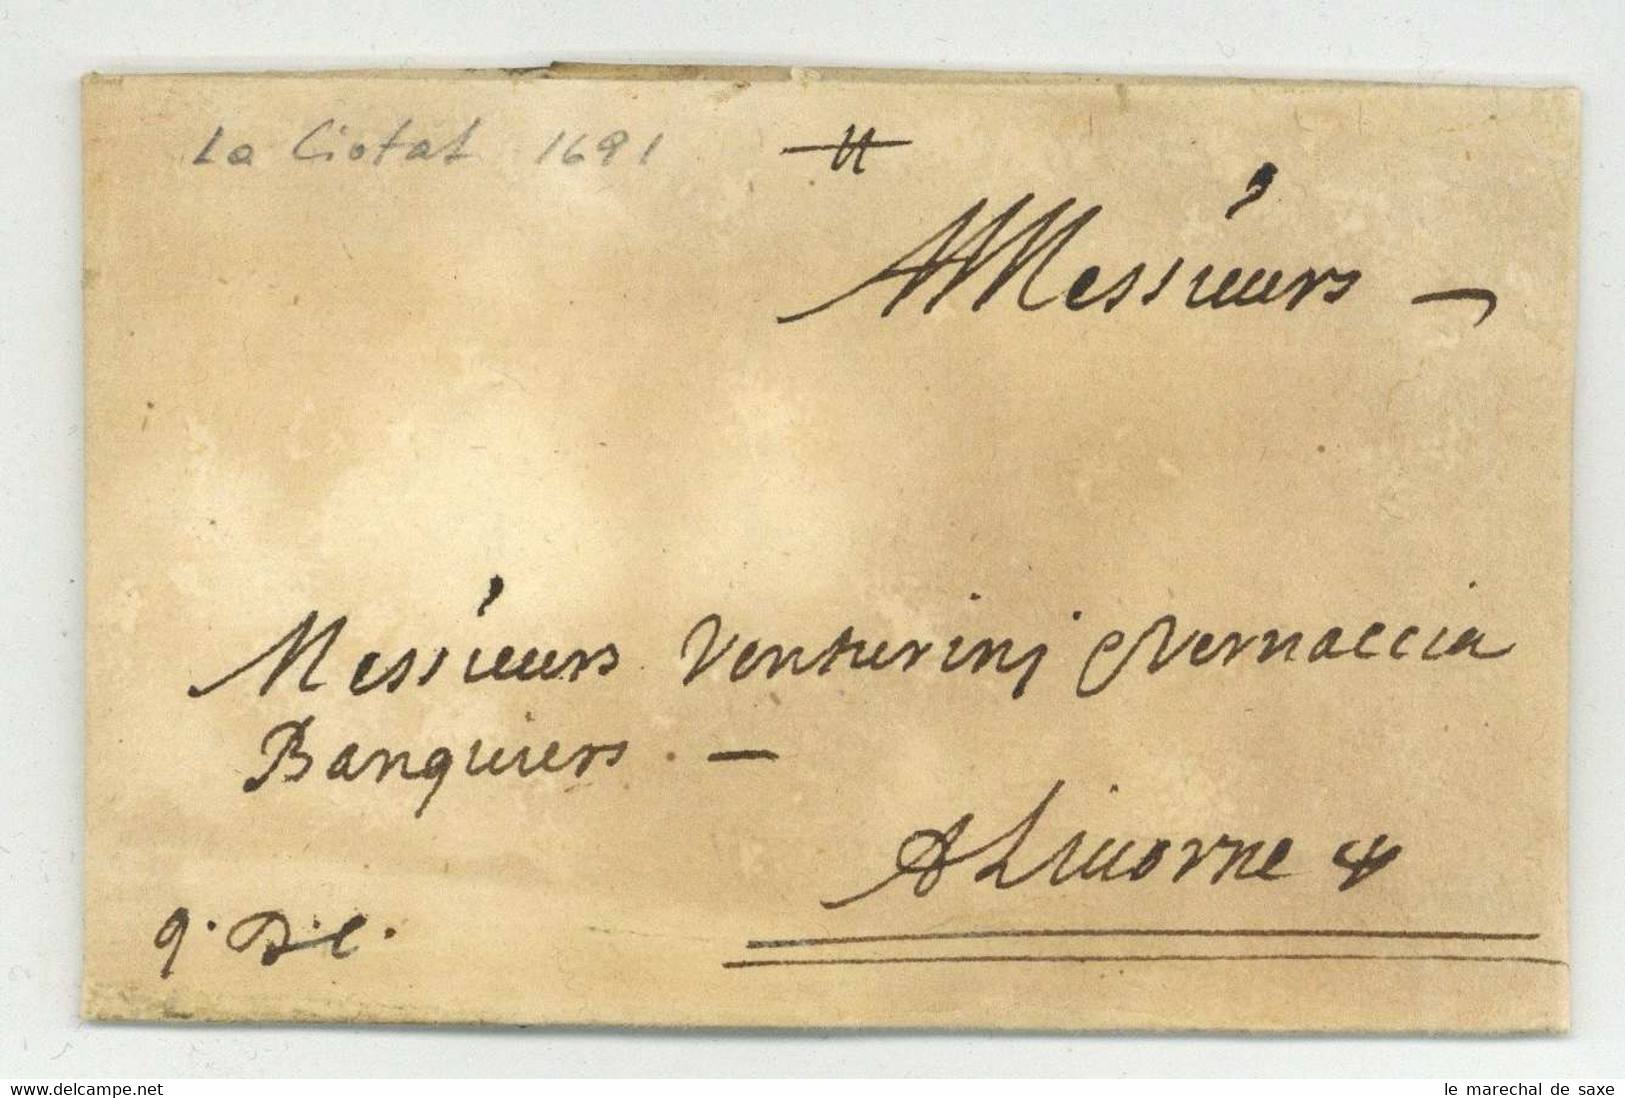 La Ciotat 1691
A Messieurs
Messieurs Venturinj e Vernaccia
Banquiers
A Liuorne
q. D. C.
www.delcampe.net
le marechal de saxe